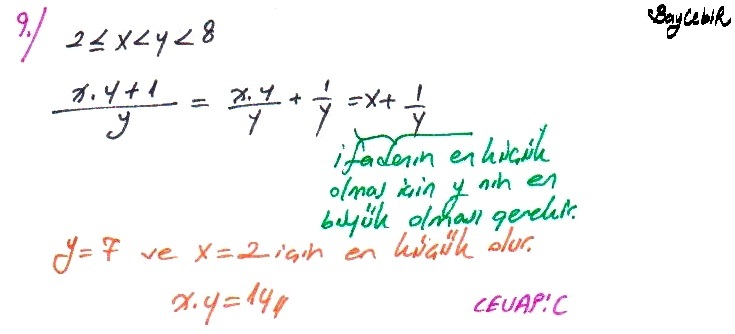 BayCebir
9./ 2 ≤ x < y < 8
x.y+1 / y = x.y / y + 1 / y = x + 1 / y
ifadenin en küçük
olması için y nin en
büyük olması gerekir.
y = 7 ve x = 2 için en küçük olur.
x.y = 14//
CEVAP: C